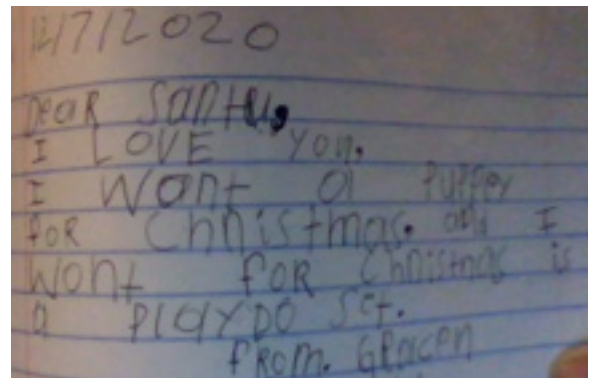 12/7/2020
Dear Santu,
I LOVE You.
I Wont a Puppey
foR Chnistmas. and I
Wont foR Chnistmas is
a PlayDo Set.
fROM. GRacen